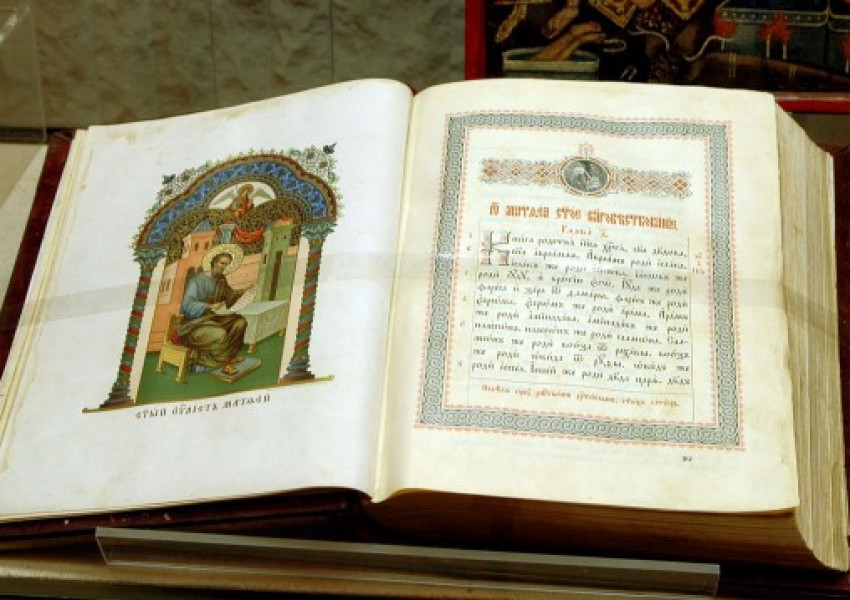 СТЫ́Й ЄѴ҃ЛІСТЪ МАТѲЕЙ
Ѿ МАТѲЕА СТОЕ БЛГОВѢСТВОВАНІЕ
Глава а҃.
Книга родства іи҃са хр҃та, сн҃а дв҃дова,
сн҃а авраамлѧ. Авраамъ роди ісаака.
Ісаакъ же роди іакѡва. Іакѡвъ же
роди іꙋдꙋ, и братїю єгѡ. Іꙋда же роди
фареса и зара ѿ ѳамары. Фаресъ же роди
есрѡма. Есрѡмъ же роди арама. Арамъ
же роди амінадава. Амінадавъ же роди
наассѡна. Наассѡнъ же роди салмѡна. Сал-
мѡнъ же роди вооза ѿ рахавы. Воозъ
же роди ѡвида ѿ рꙋѳы. Ѡвидъ же
роди іессеа. Іессей же роди дв҃да царѧ. Дв҃дъ